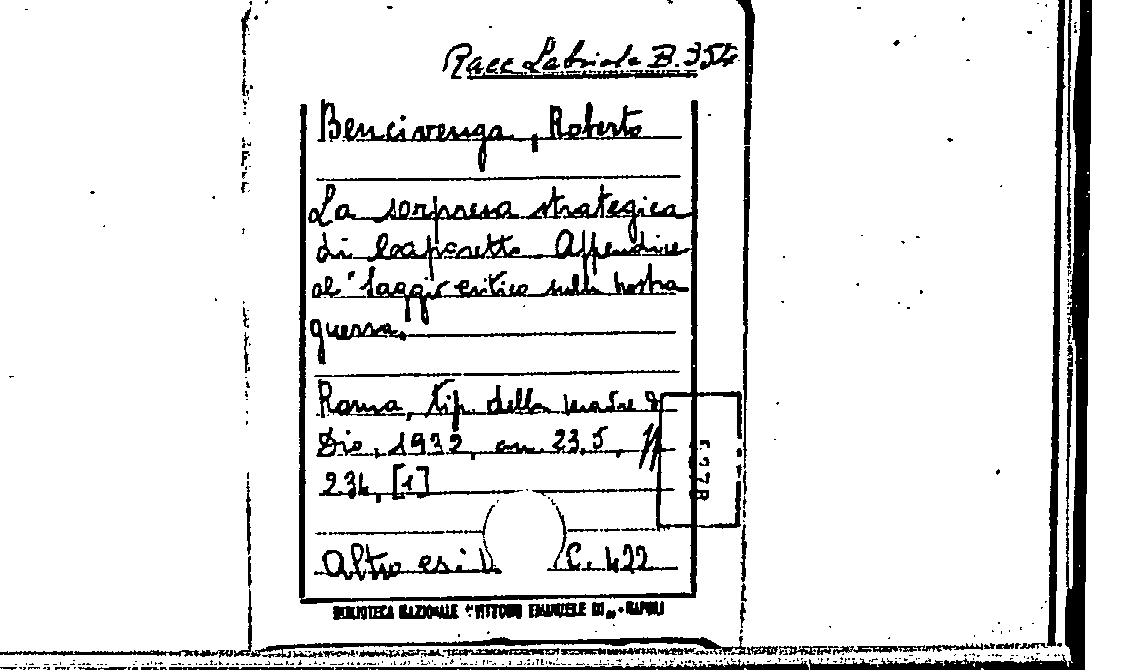 Racc Labriola B. 354
Bencivenga, Roberto
La sorpresa strategica
di Caporetto. Appendice
al "Saggio critico sulla nostra
guerra.
Roma, tip. della madre di
Dio, 1932, cm. 23,5, pp
234, [1]
Altro es. i C. 422
BIBLIOTECA NAZIONALE "VITTORIO EMANUELE III" - NAPOLI